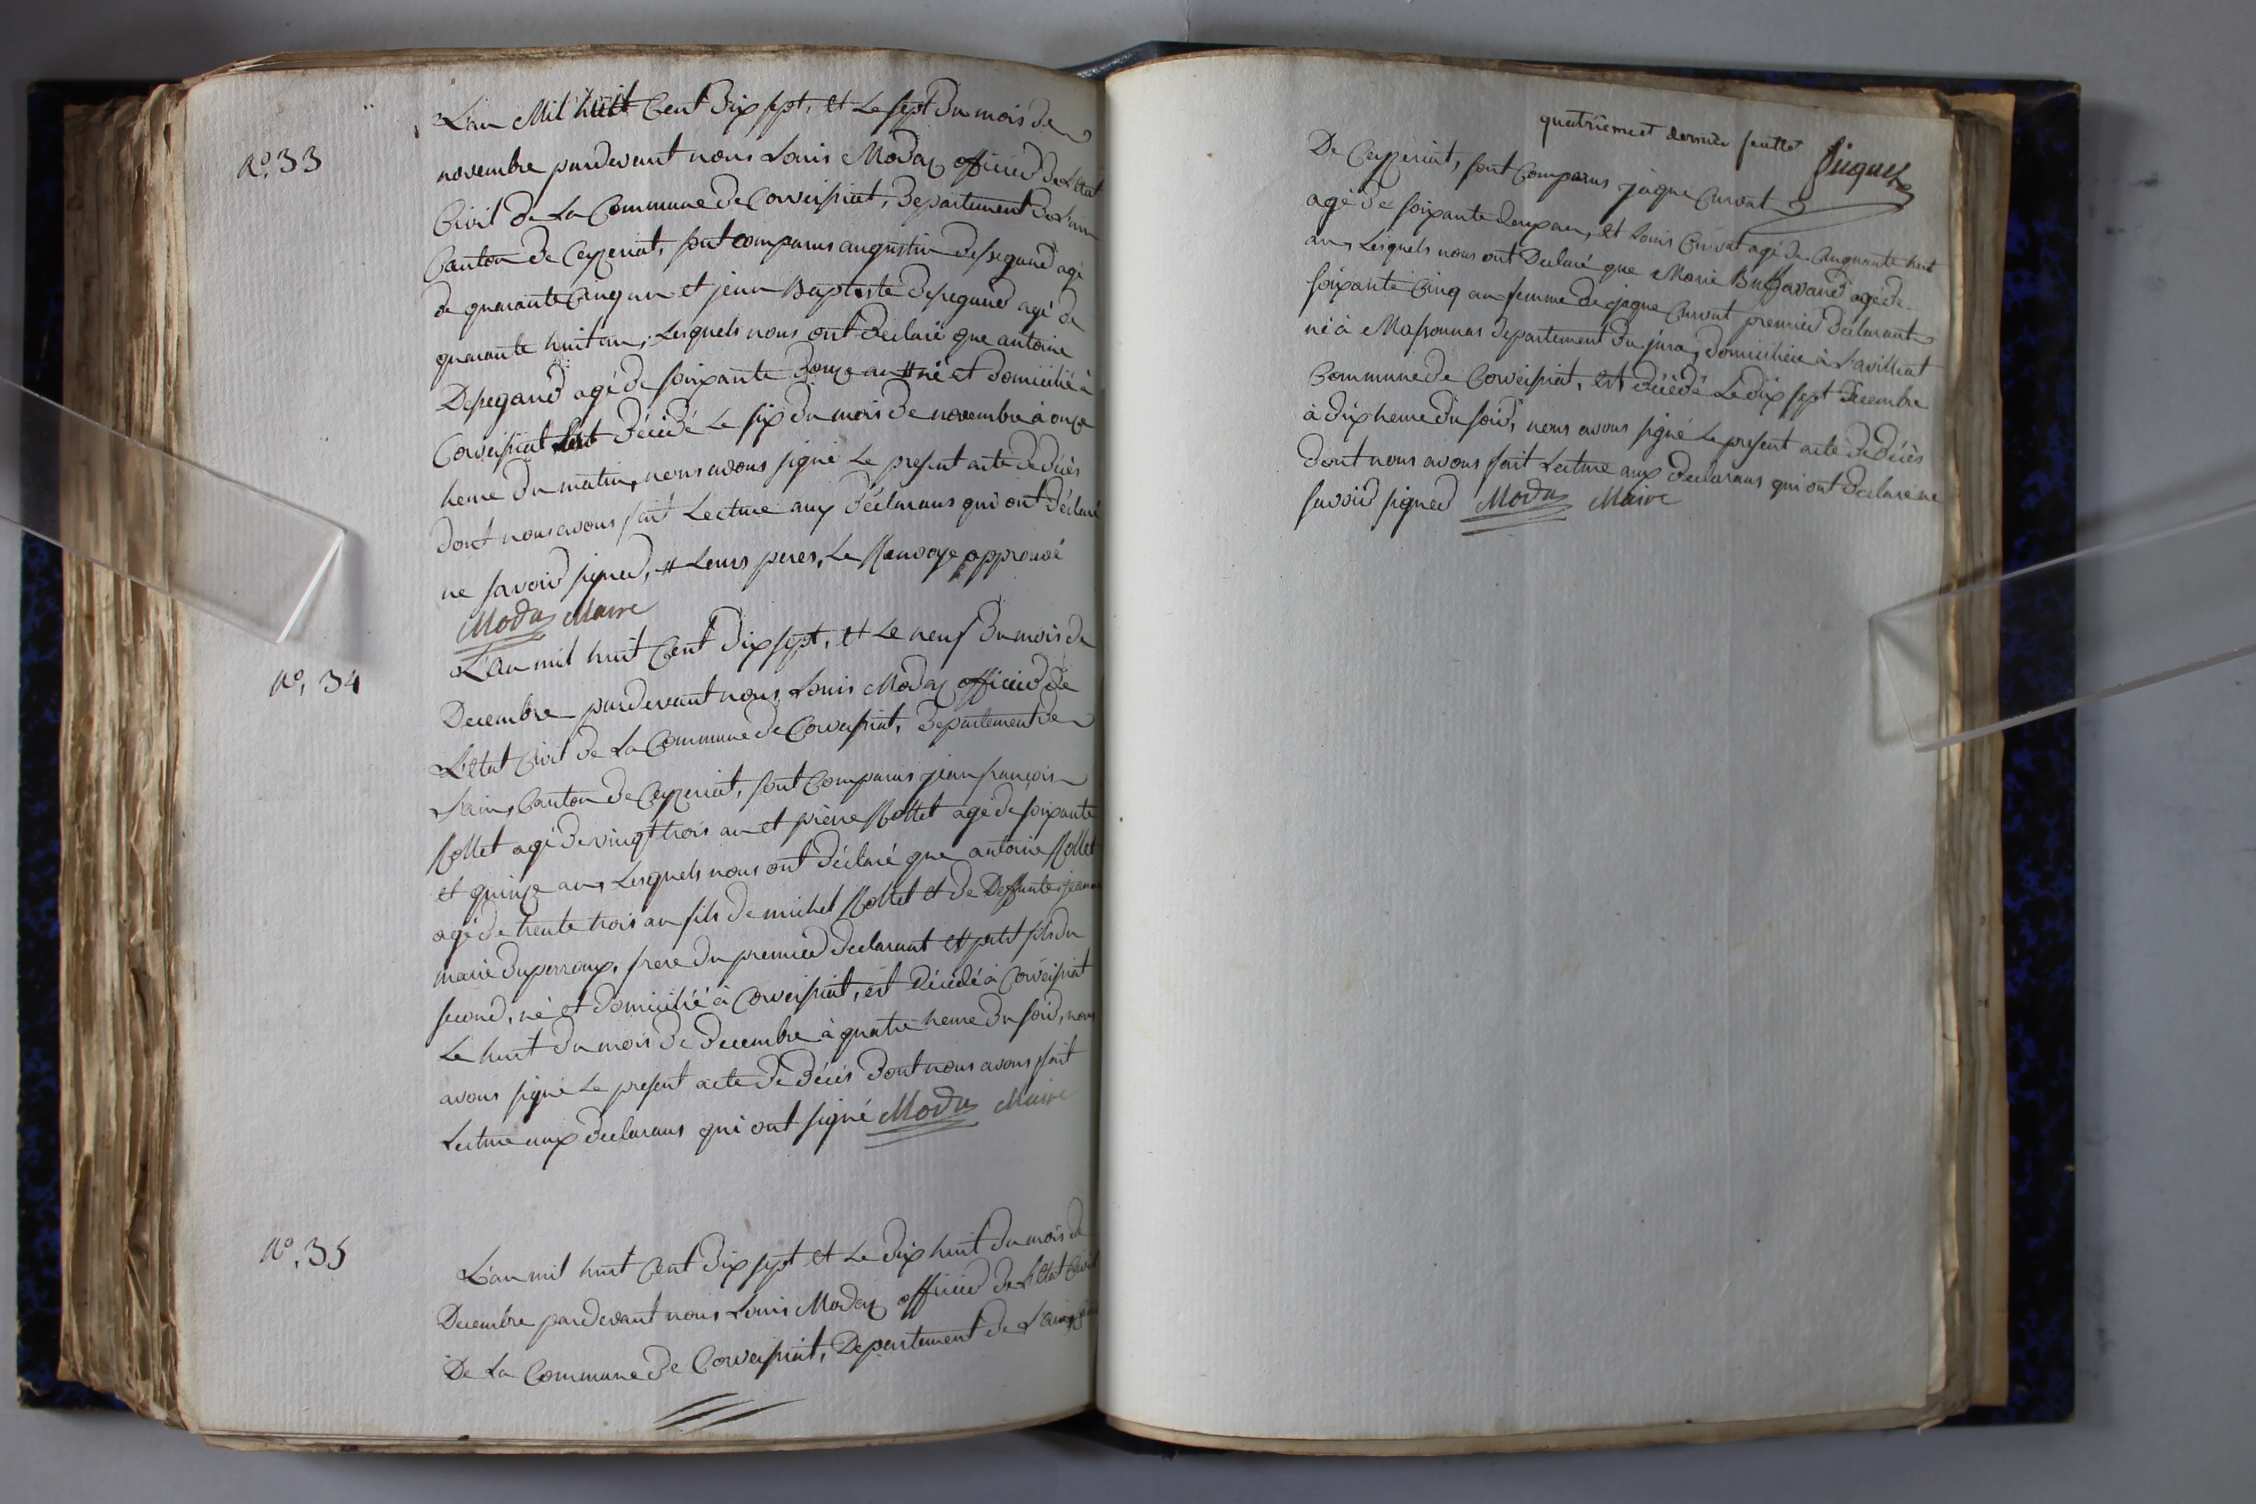 N°. 33
L'an Mil huit Cent Dix sept, et Le sept Du mois de
novembre pardevant nous Louis Moday officier de L'état
Civil de La Commune de Corveissiat, Departement de L'ain
Canton de Ceyzeriat, sont comparus augustin Desegaud agé
de quarante Cinq an et jean Baptiste Desegaud agé de
quarante huit an, Lesquels nous ont declaré que antoine
Desegaud agé de soixante Douze an # né et domicilié à
Corveissiat est Décédé Le six du mois de novembre à onze
heure du matin, nous avons signé Le present acte de décès
dont nous avons fait Lecture aux déclarans qui ont déclaré
ne savoir signer, # Leurs peres, Le Renvoye approuvé
Moday Maire
N°, 34
L'an mil huit Cent Dix sept, et Le neuf Du mois de
Decembre pardevant nous Louis Moday officier de
L'état Civil de La Commune de Corveissiat, Departement de
L'ain, Canton de Ceyzeriat, sont Comparus jean françois
Rollet agé de vingt trois an et pierre Rollet agé de soixante
et quinze an, Lesquels nous ont déclaré que antoine Rollet
agé de trente trois an fils de michel Rollet et de Deffunte jeanne
marie Duperroux, frere du premier declarant et petit fils du
second, né et domicilié à Corveissiat, est Décédé à Corveissiat
Le huit du mois de decembre à quatre heure du soir, nous
avons signé Le present acte de Décès Dont nous avons fait
Lecture aux declarans qui ont signé Moday Maire
N°. 35
L'an mil huit Cent Dix sept et Le dix huit du mois de
Decembre pardevant nous Louis Moday officier de L'état Civil
De La Commune de Corveissiat, Departement de L'ain,
quatrieme et dernier feuillet
De Ceyzeriat, sont Comparus jâque Curvat
agé de soixante Douze an, et Louis Curvat agé de Cinquante huit
an, Lesquels nous ont Declaré que Marie Buffavand agé de
soixante Cinq an femme de jâque Curvat premier declarant
né à Massonnas departement du jura, domiciliée à Lavilliat
Commune de Corveissiat, est décédé Le dix sept Decembre
à dix heure du soir, nous avons signé Le present acte de décès
dont nous avons fait Lecture aux declarans qui ont declaré ne
savoir signer Moday Maire